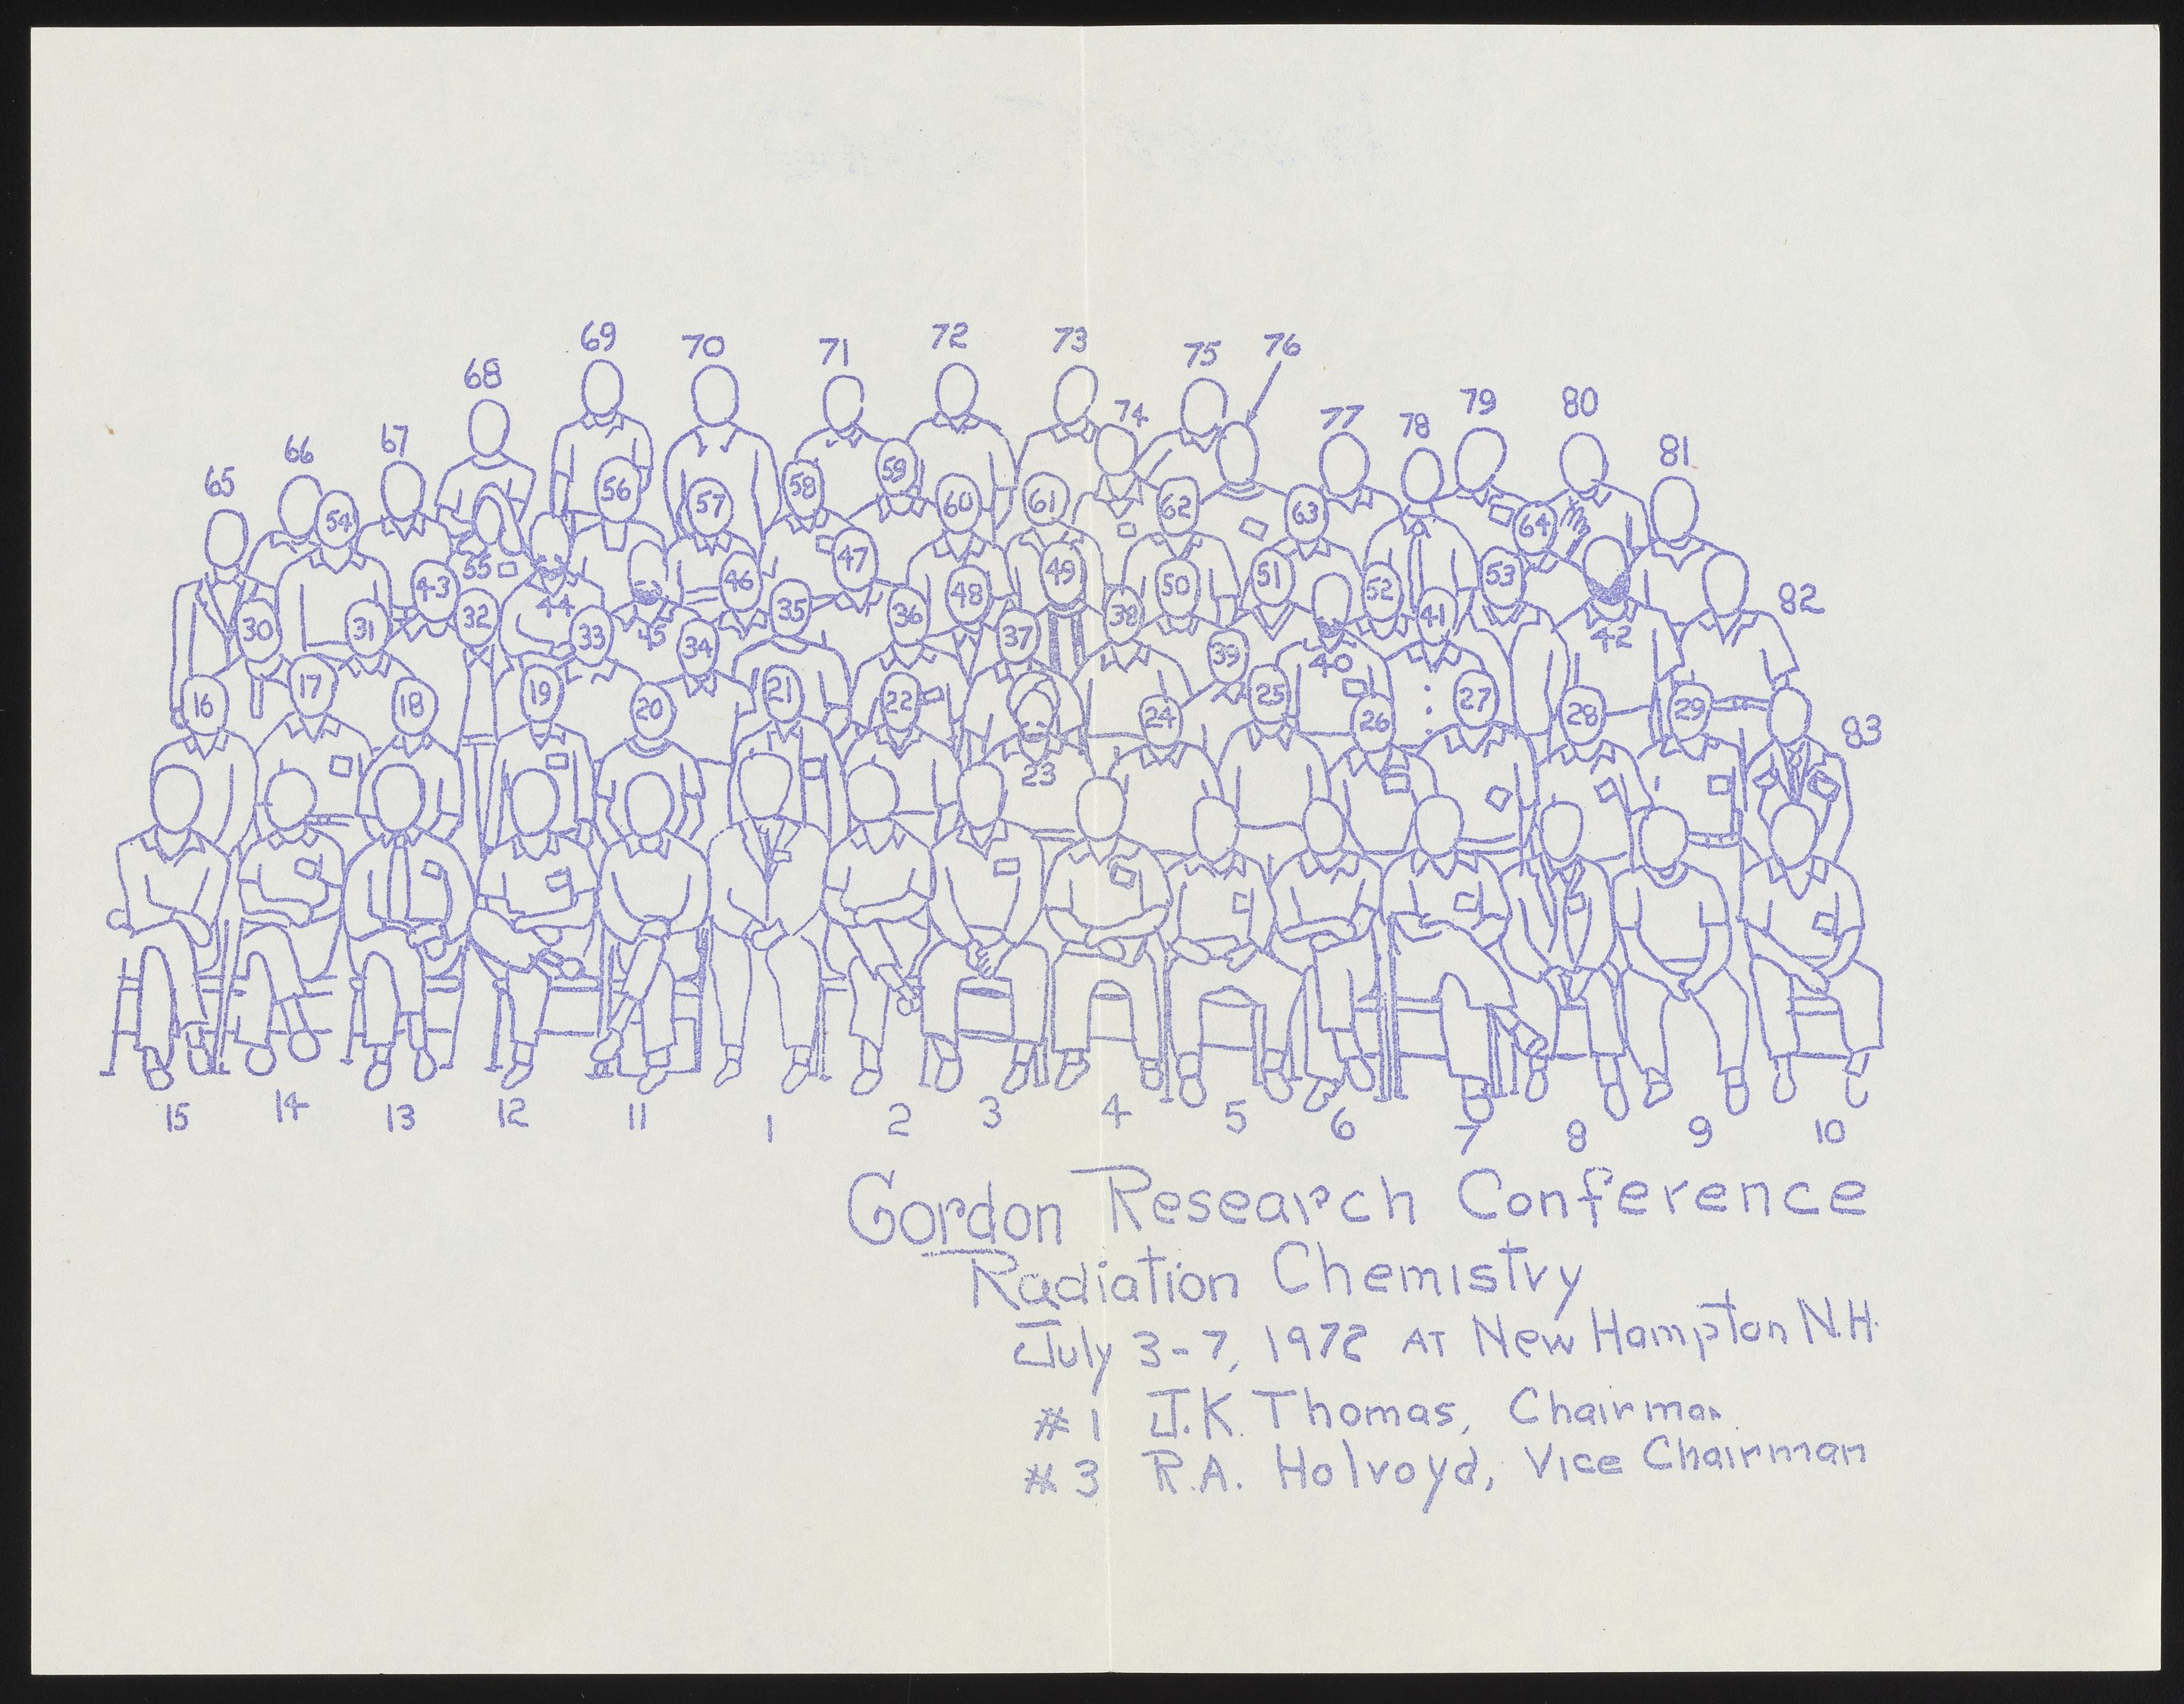 69 70 71 72 73 75 76
68 74 77 78 79 80
65 66 67 81
56 57 58 59 60 61 62 63 64
54 55 43 44 45 46 47 48 49 50 51 52 53 82
30 31 32 33 34 35 36 37 38 39 40 41 42
16 17 18 19 20 21 22 23 24 25 26 27 28 29 83
15 14 13 12 11 1 2 3 4 5 6 7 8 9 10
Gordon Research Conference
Radiation Chemistry
July 3-7, 1972 AT New Hampton N.H.
#1 J.K. Thomas, Chairman
#3 R.A. Holroyd, Vice Chairman